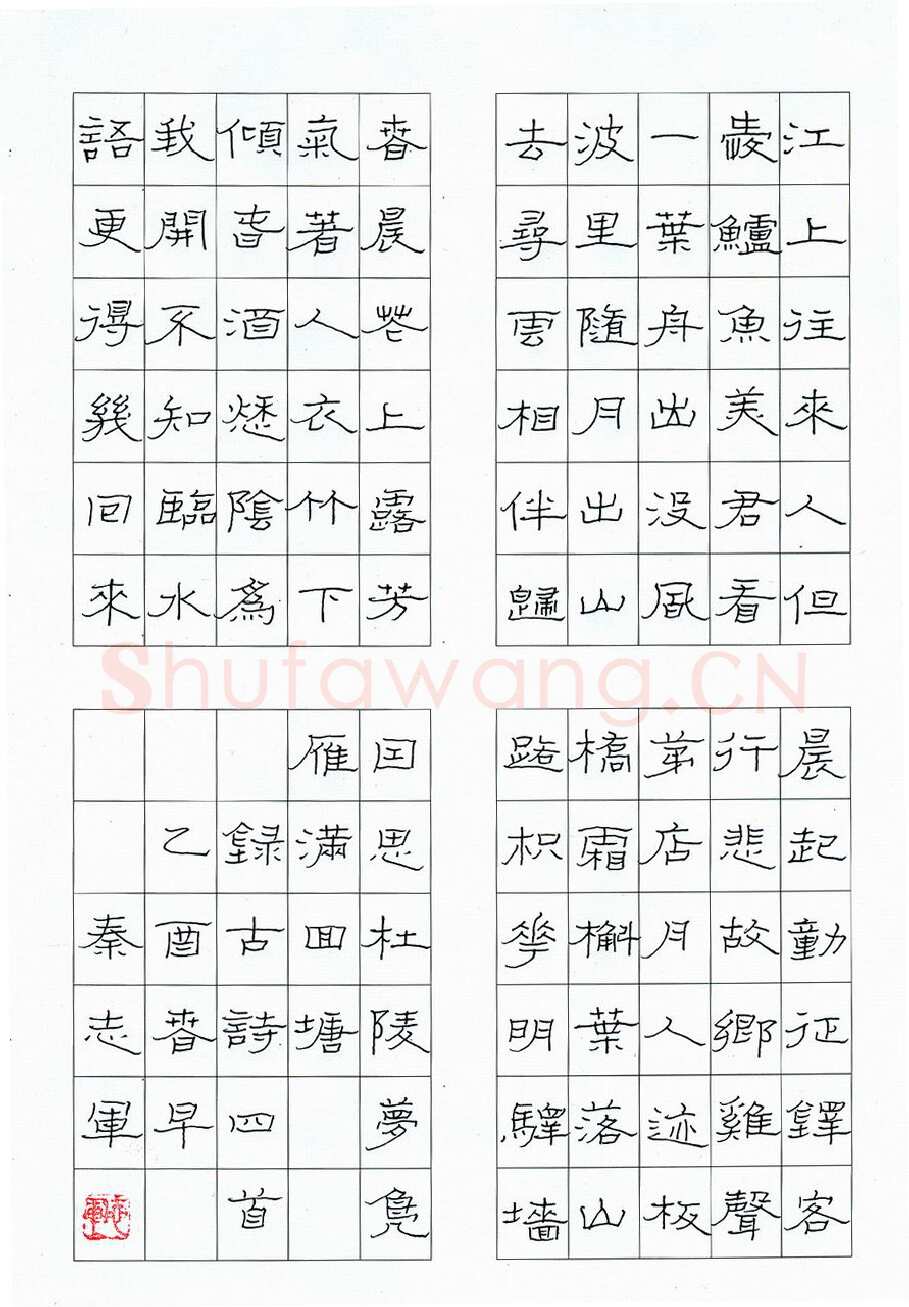 江上往來人但
愛鱸魚美君看
一葉舟出没風
波里隨月出山
去尋雲相伴歸
春晨花上露芳
氣著人衣竹下
傾春酒愁陰為
我開不知臨水
語更得幾回來
晨起動征鐸客
行悲故鄉雞聲
茅店月人迹板
橋霜槲葉落山
路枳花明驛墻
因思杜陵夢鳧
雁滿回塘
錄古詩四首
乙酉春早
秦志軍
Shufawang.CN